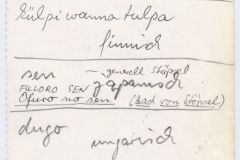 külpiwanna tulpa
finnisch
sen — generell Stöpsel
FUURO SEN japanisch
Ofuro no sen (Bad von Stöpsel)
dugo
ungarisch